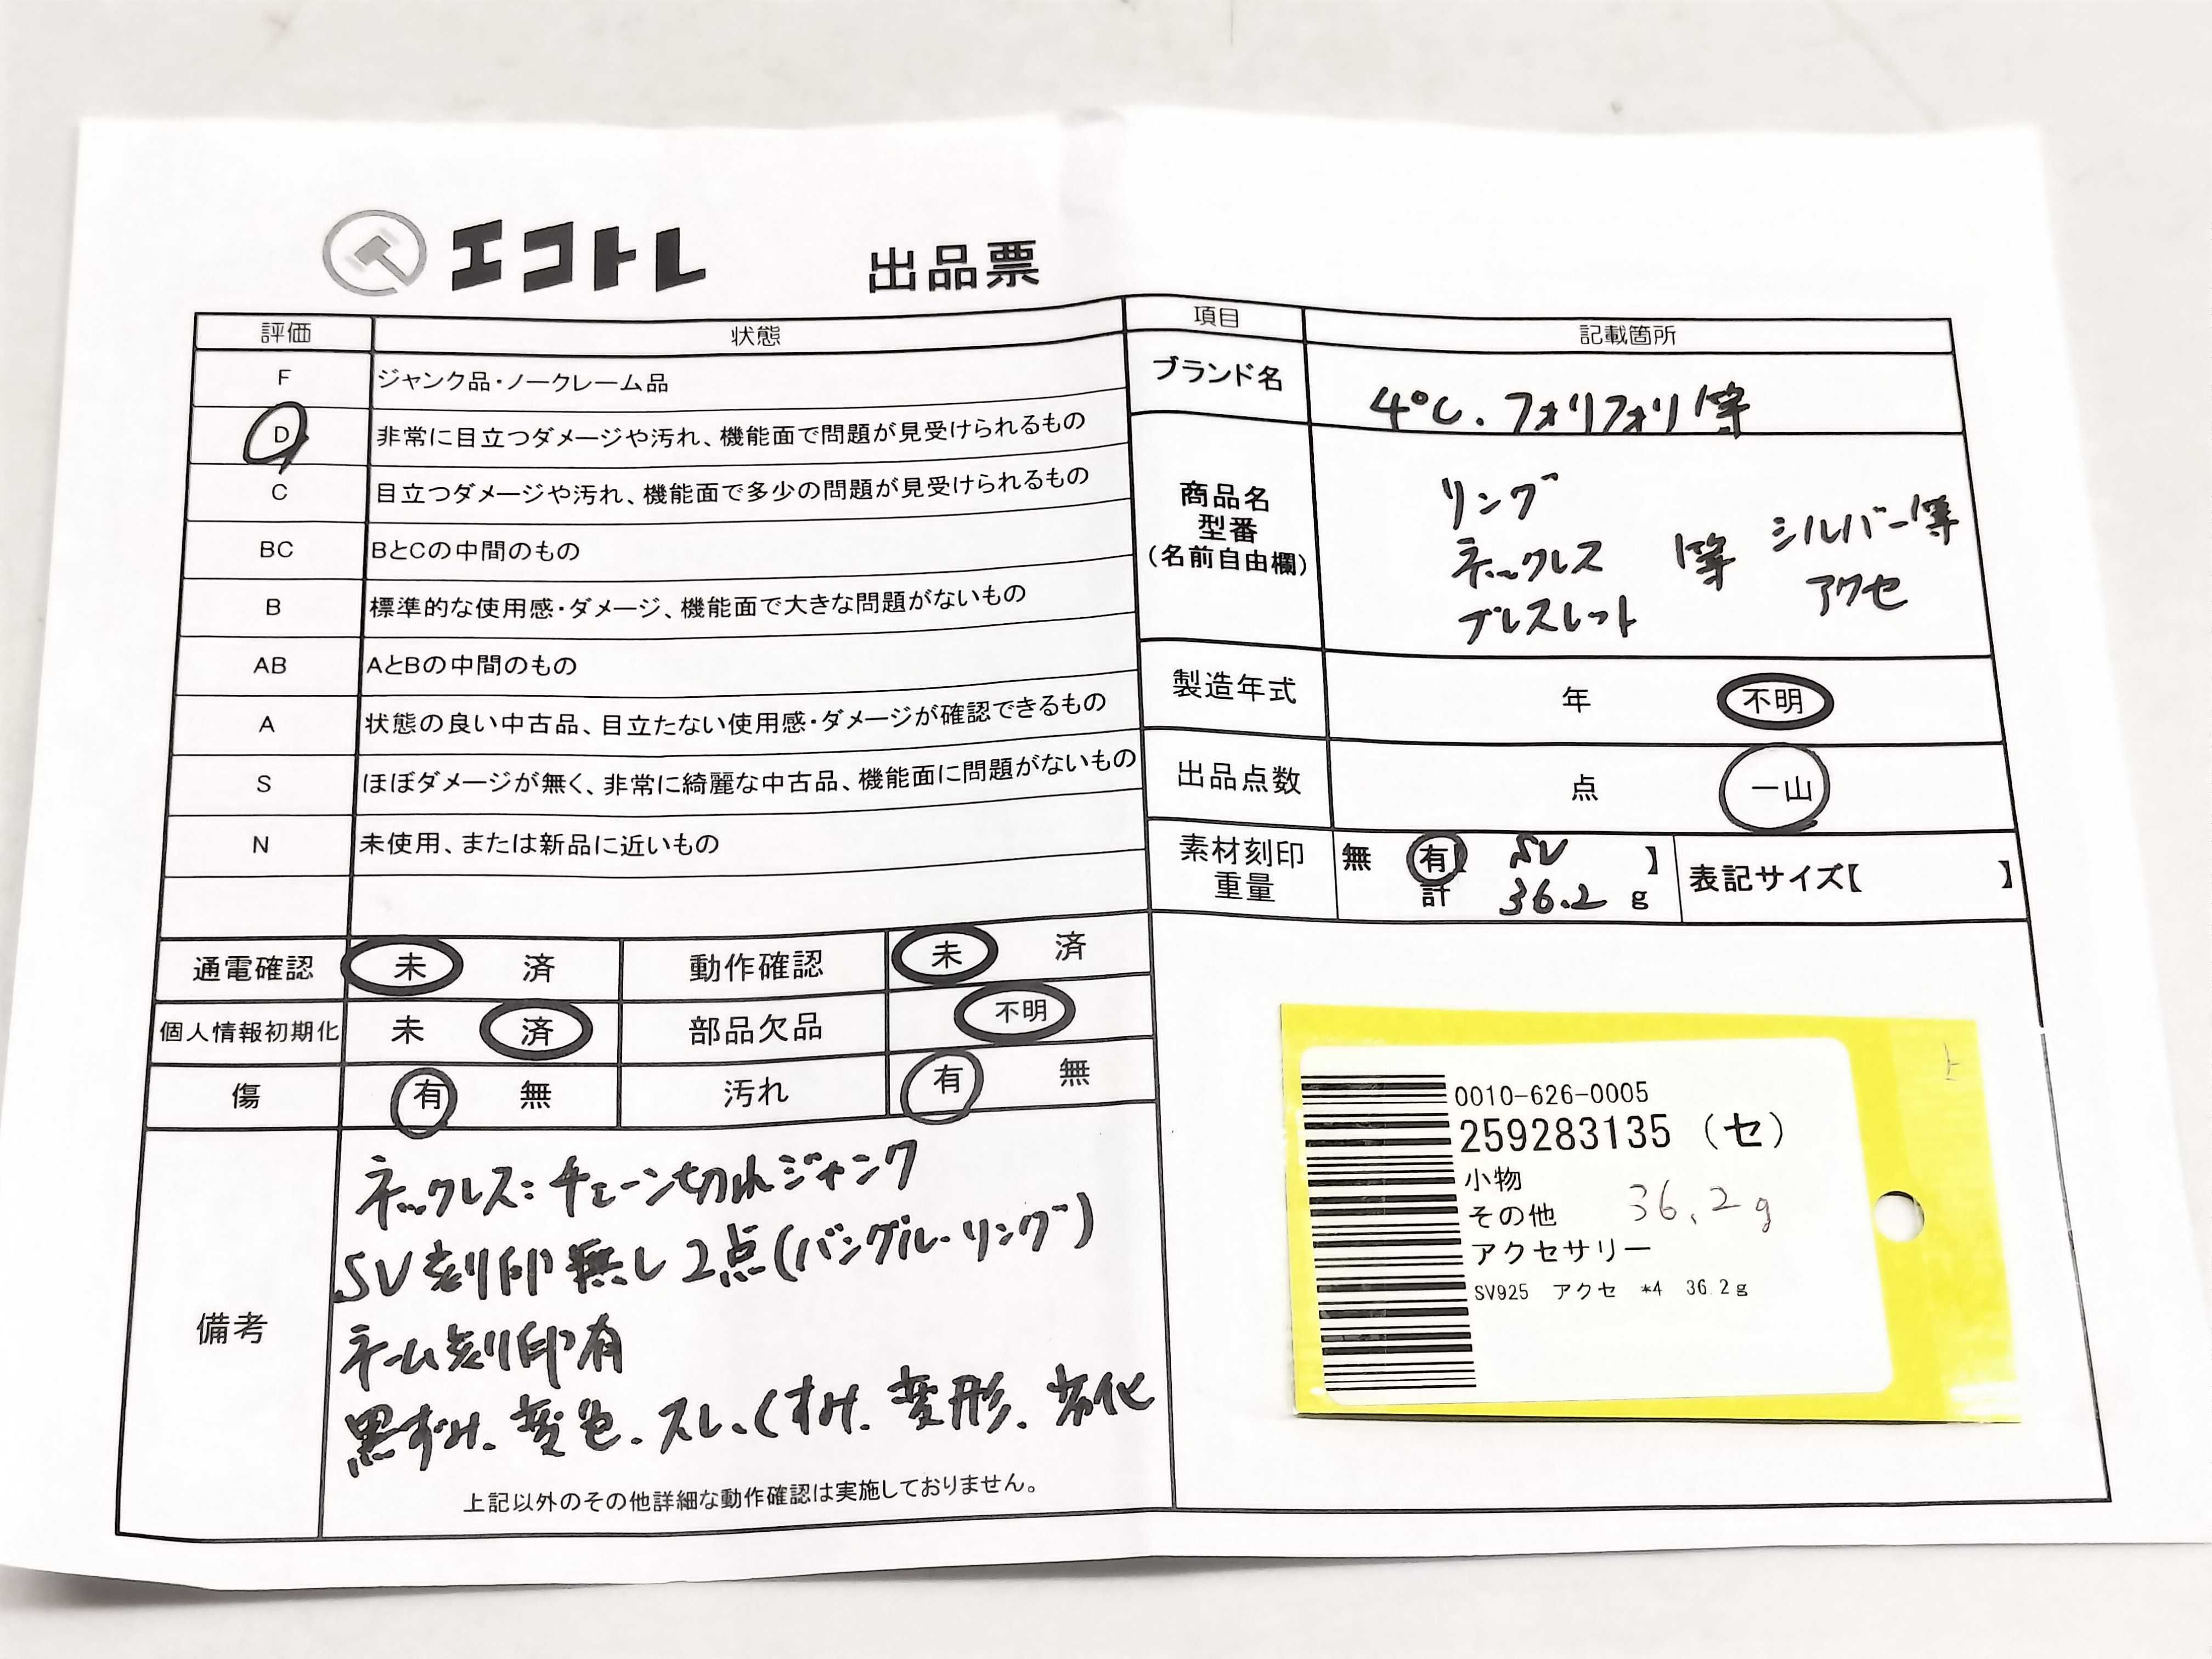 エコトレ 出品票
評価 状態
F ジャンク品・ノークレーム品
D 非常に目立つダメージや汚れ、機能面で問題が見受けられるもの
C 目立つダメージや汚れ、機能面で多少の問題が見受けられるもの
BC BとCの中間のもの
B 標準的な使用感・ダメージ、機能面で大きな問題がないもの
AB AとBの中間のもの
A 状態の良い中古品、目立たない使用感・ダメージが確認できるもの
S ほぼダメージが無く、非常に綺麗な中古品、機能面に問題がないもの
N 未使用、または新品に近いもの
通電確認 未 済 動作確認 未 済
個人情報初期化 未 済 部品欠品 不明
傷 有 無 汚れ 有 無
備考
ネックレス:チェーン切れジャンク
SV刻印無し2点(バングル・リング)
ネーム刻印有
黒ずみ、変色、スレ、くすみ、変形、劣化
上記以外のその他詳細な動作確認は実施しておりません。
項目 記載箇所
ブランド名 4℃、フォリフォリ等
商品名
型番
(名前自由欄)
リング
ネックレス 等 シルバー等
ブレスレット アクセ
製造年式 年 不明
出品点数 点 一山
素材刻印 無 有 SV 】 表記サイズ【 】
重量 計 36.2 g
上
0010-626-0005
259283135 (セ)
小物
その他 36.2g
アクセサリー
SV925 アクセ *4 36.2g